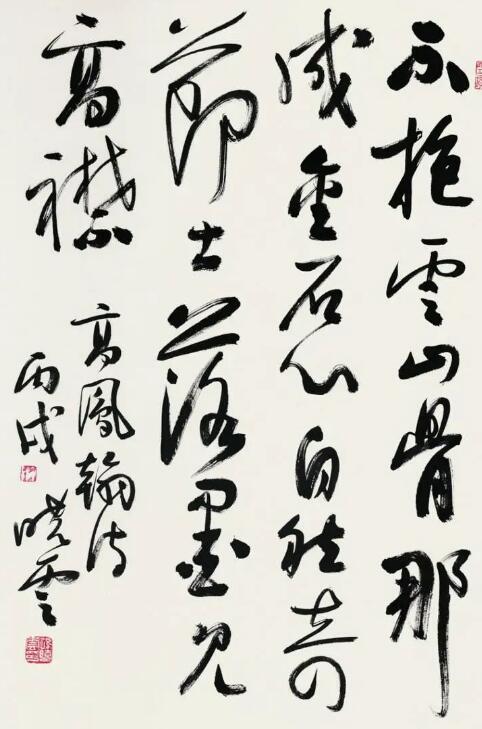 不抱雲山骨那
成金石心自然奇
節士落墨見
高襟
高鳳翰诗
丙戌 曉雲